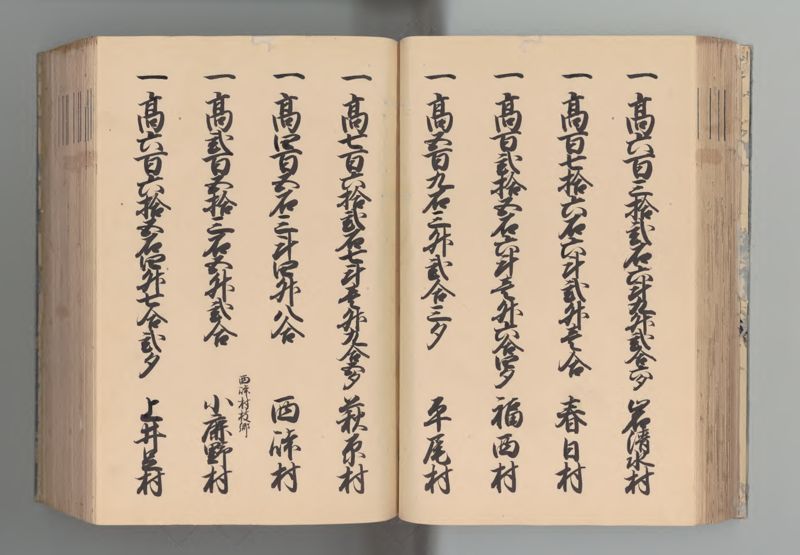 一 高六百三拾弐石六斗九升弐合六夕 岩清水村
一 高百七拾六石六斗弐升壱合 春日村
一 高百弐拾五石六斗壱升六合四夕 福西村
一 高五百九石三升弐合三夕 平尾村
一 高七百六拾弐石七斗壱升九合五夕 萩原村
一 高四百五石三斗四升八合 西峠村
西峠村枝郷
一 高弐百五拾三石五升弐合 小鹿野村
一 高六百六拾五石四升七合弐夕 上井足村